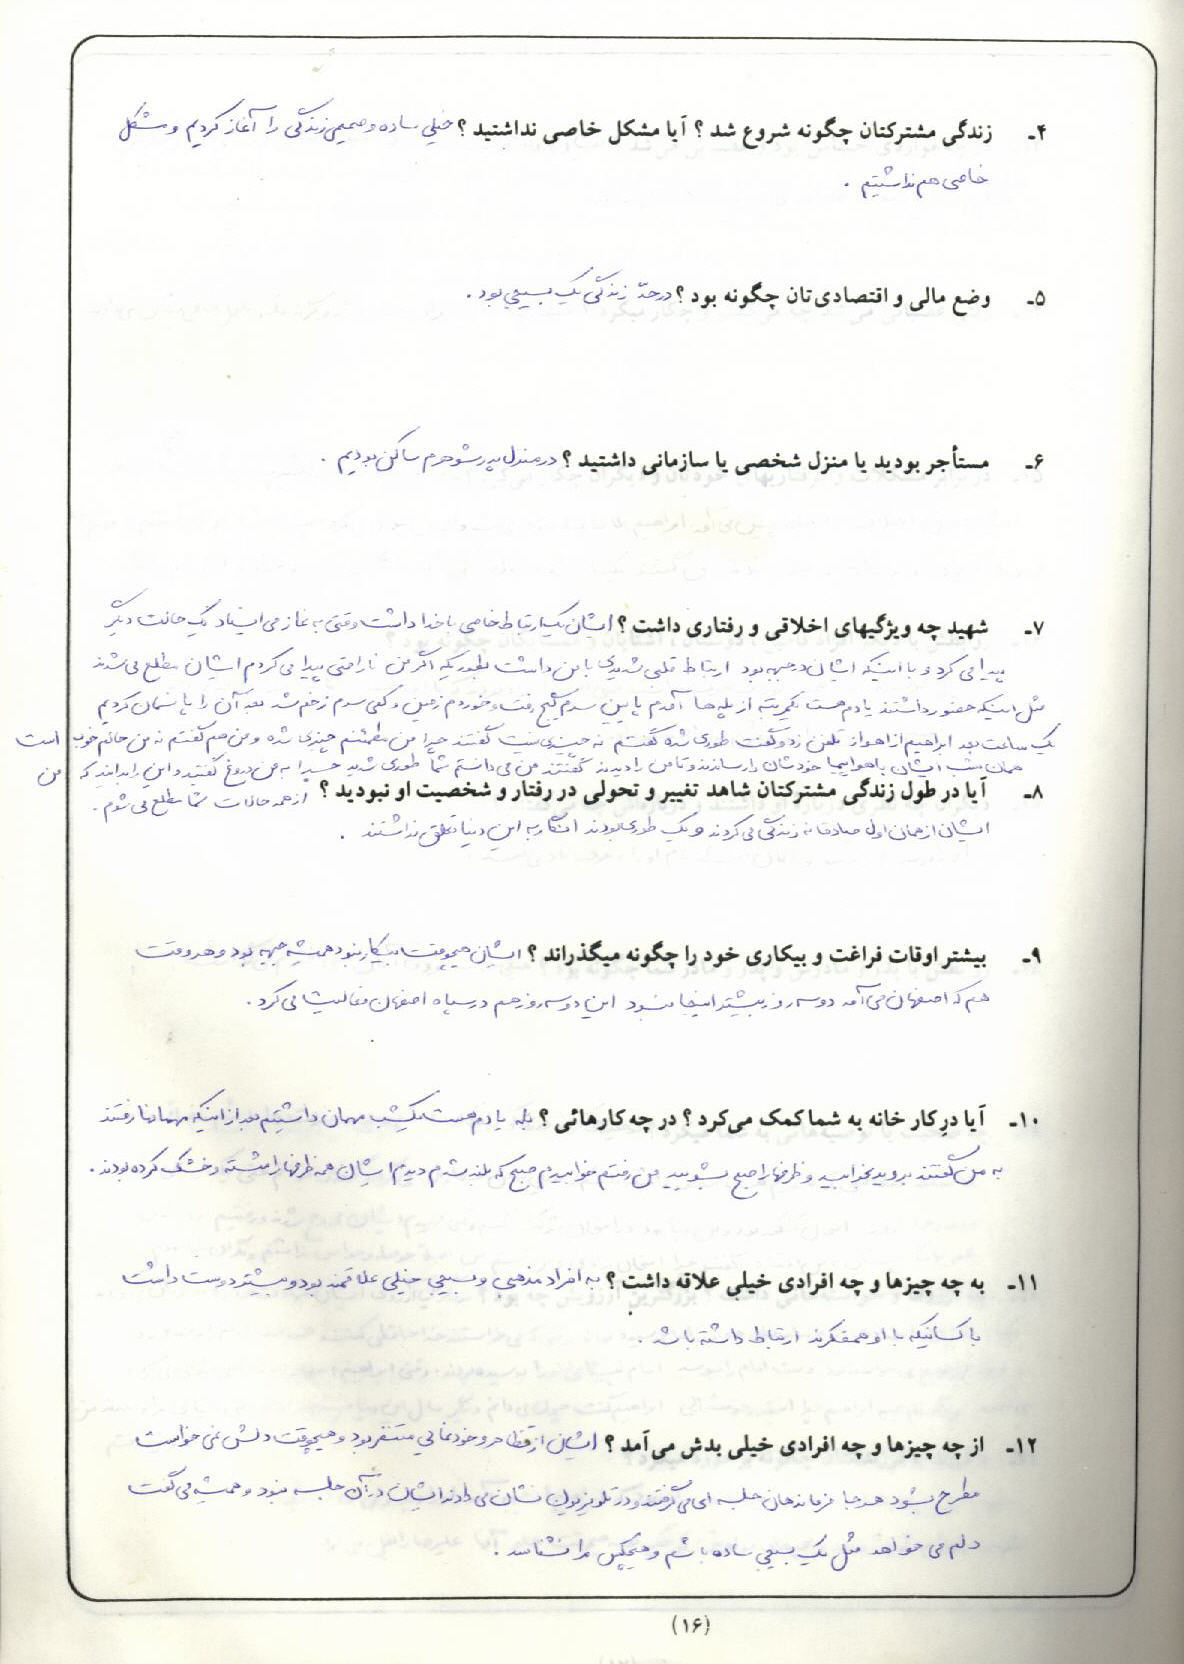 ۴ـ زندگی مشترکتان چگونه شروع شد ؟ آیا مشکل خاصی نداشتید ؟ خیلی ساده و صمیمی زندگی را آغاز کردیم و مشکل
خاصی هم نداشتیم .
۵ـ وضع مالی و اقتصادی‌تان چگونه بود ؟ در حدّ زندگی یک بسیجی بود .
۶ـ مستأجر بودید یا منزل شخصی یا سازمانی داشتید ؟ در منزل پدر شوهرم ساکن بودیم .
۷ـ شهید چه ویژگیهای اخلاقی و رفتاری داشت ؟ ایشان یک ارتباط خاصی با خدا داشت وقتی به نماز می ایستاد یک حالت دیگر
پیدا می کرد و با اینکه ایشان در جبهه بود ارتباط قلبی شدیدی با من داشت بطوریکه اگر من ناراحتی پیدا می کردم ایشان مطلع می شدند
مثل اینکه حضور داشتند یادم هست یکمرتبه از پله ها آمدم پایین سرم گیج رفت و خوردم زمین و کمی سرم زخم شد بعد آن را پانسمان کردیم
یک ساعت بعد ابراهیم از اهواز تلفن زد و گفت طوری شده گفتم نه چیزی نیست گفتند چرا من مطمئنم چیزی شده و من هم گفتم نه من حالم خوب است
همان شب ایشان با هواپیما خودشان را رساندند و تا من را دیدند گفتند من می دانستم شما طوری شدید چرا به من دروغ گفتید و این را بدانید که من
از همه حالات شما مطلع می شوم .
۸ـ آیا در طول زندگی مشترکتان شاهد تغییر و تحولی در رفتار و شخصیت او نبودید ؟
ایشان از همان اول صادقانه زندگی می کردند و یک طوری بودند انگار به این دنیا تعلق نداشتند .
۹ـ بیشتر اوقات فراغت و بیکاری خود را چگونه میگذراند ؟ ایشان هیچوقت بیکار نبود همیشه جبهه بود و هر وقت
هم که اصفهان می آمد دو سه روز بیشتر اینجا نبود این دو سه روز هم در سپاه اصفهان فعالیت می کرد .
۱۰ـ آیا در کار خانه به شما کمک می‌کرد ؟ در چه کارهائی ؟ بله یادم هست یکشب مهمان داشتیم بعد از اینکه مهمانها رفتند
به من گفتند بروید بخوابید و ظرفها را صبح بشویید من رفتم خوابیدم صبح که بلند شدم دیدم ایشان همه ظرفها را شسته و خشک کرده بودند .
۱۱ـ به چه چیزها و چه افرادی خیلی علاقه داشت ؟ به افراد مذهبی و بسیجی خیلی علاقمند بود و بیشتر دوست داشت
با کسانیکه با او همفکرند ارتباط داشته باشد .
۱۲ـ از چه چیزها و چه افرادی خیلی بدش می‌آمد ؟ ایشان از تظاهر و خودنمایی متنفر بود و هیچوقت دلش نمی خواست
مطرح بشود هر جا فرماندهان جلسه ای می گرفتند و در تلویزیون نشان می دادند ایشان در آن جلسه نبود و همیشه می گفت
دلم می خواهد مثل یک بسیجی ساده باشم و هیچکس مرا نشناسد .
(۱۶)